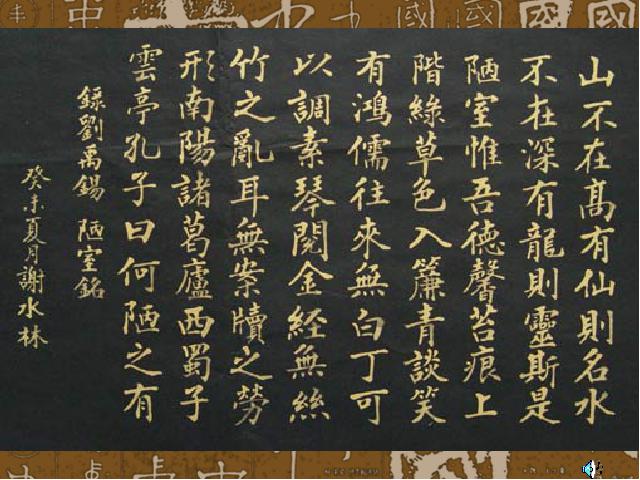 山不在髙有仙則名水
不在深有龍則靈斯是
陋室惟吾徳馨苔痕上
階綠草色入簾青談笑
有鴻儒往來無白丁可
以調素琴閱金經無絲
竹之亂耳無案牘之勞
形南陽諸葛廬西蜀子
雲亭孔子曰何陋之有
錄劉禹錫 陋室銘
癸未夏月謝水林